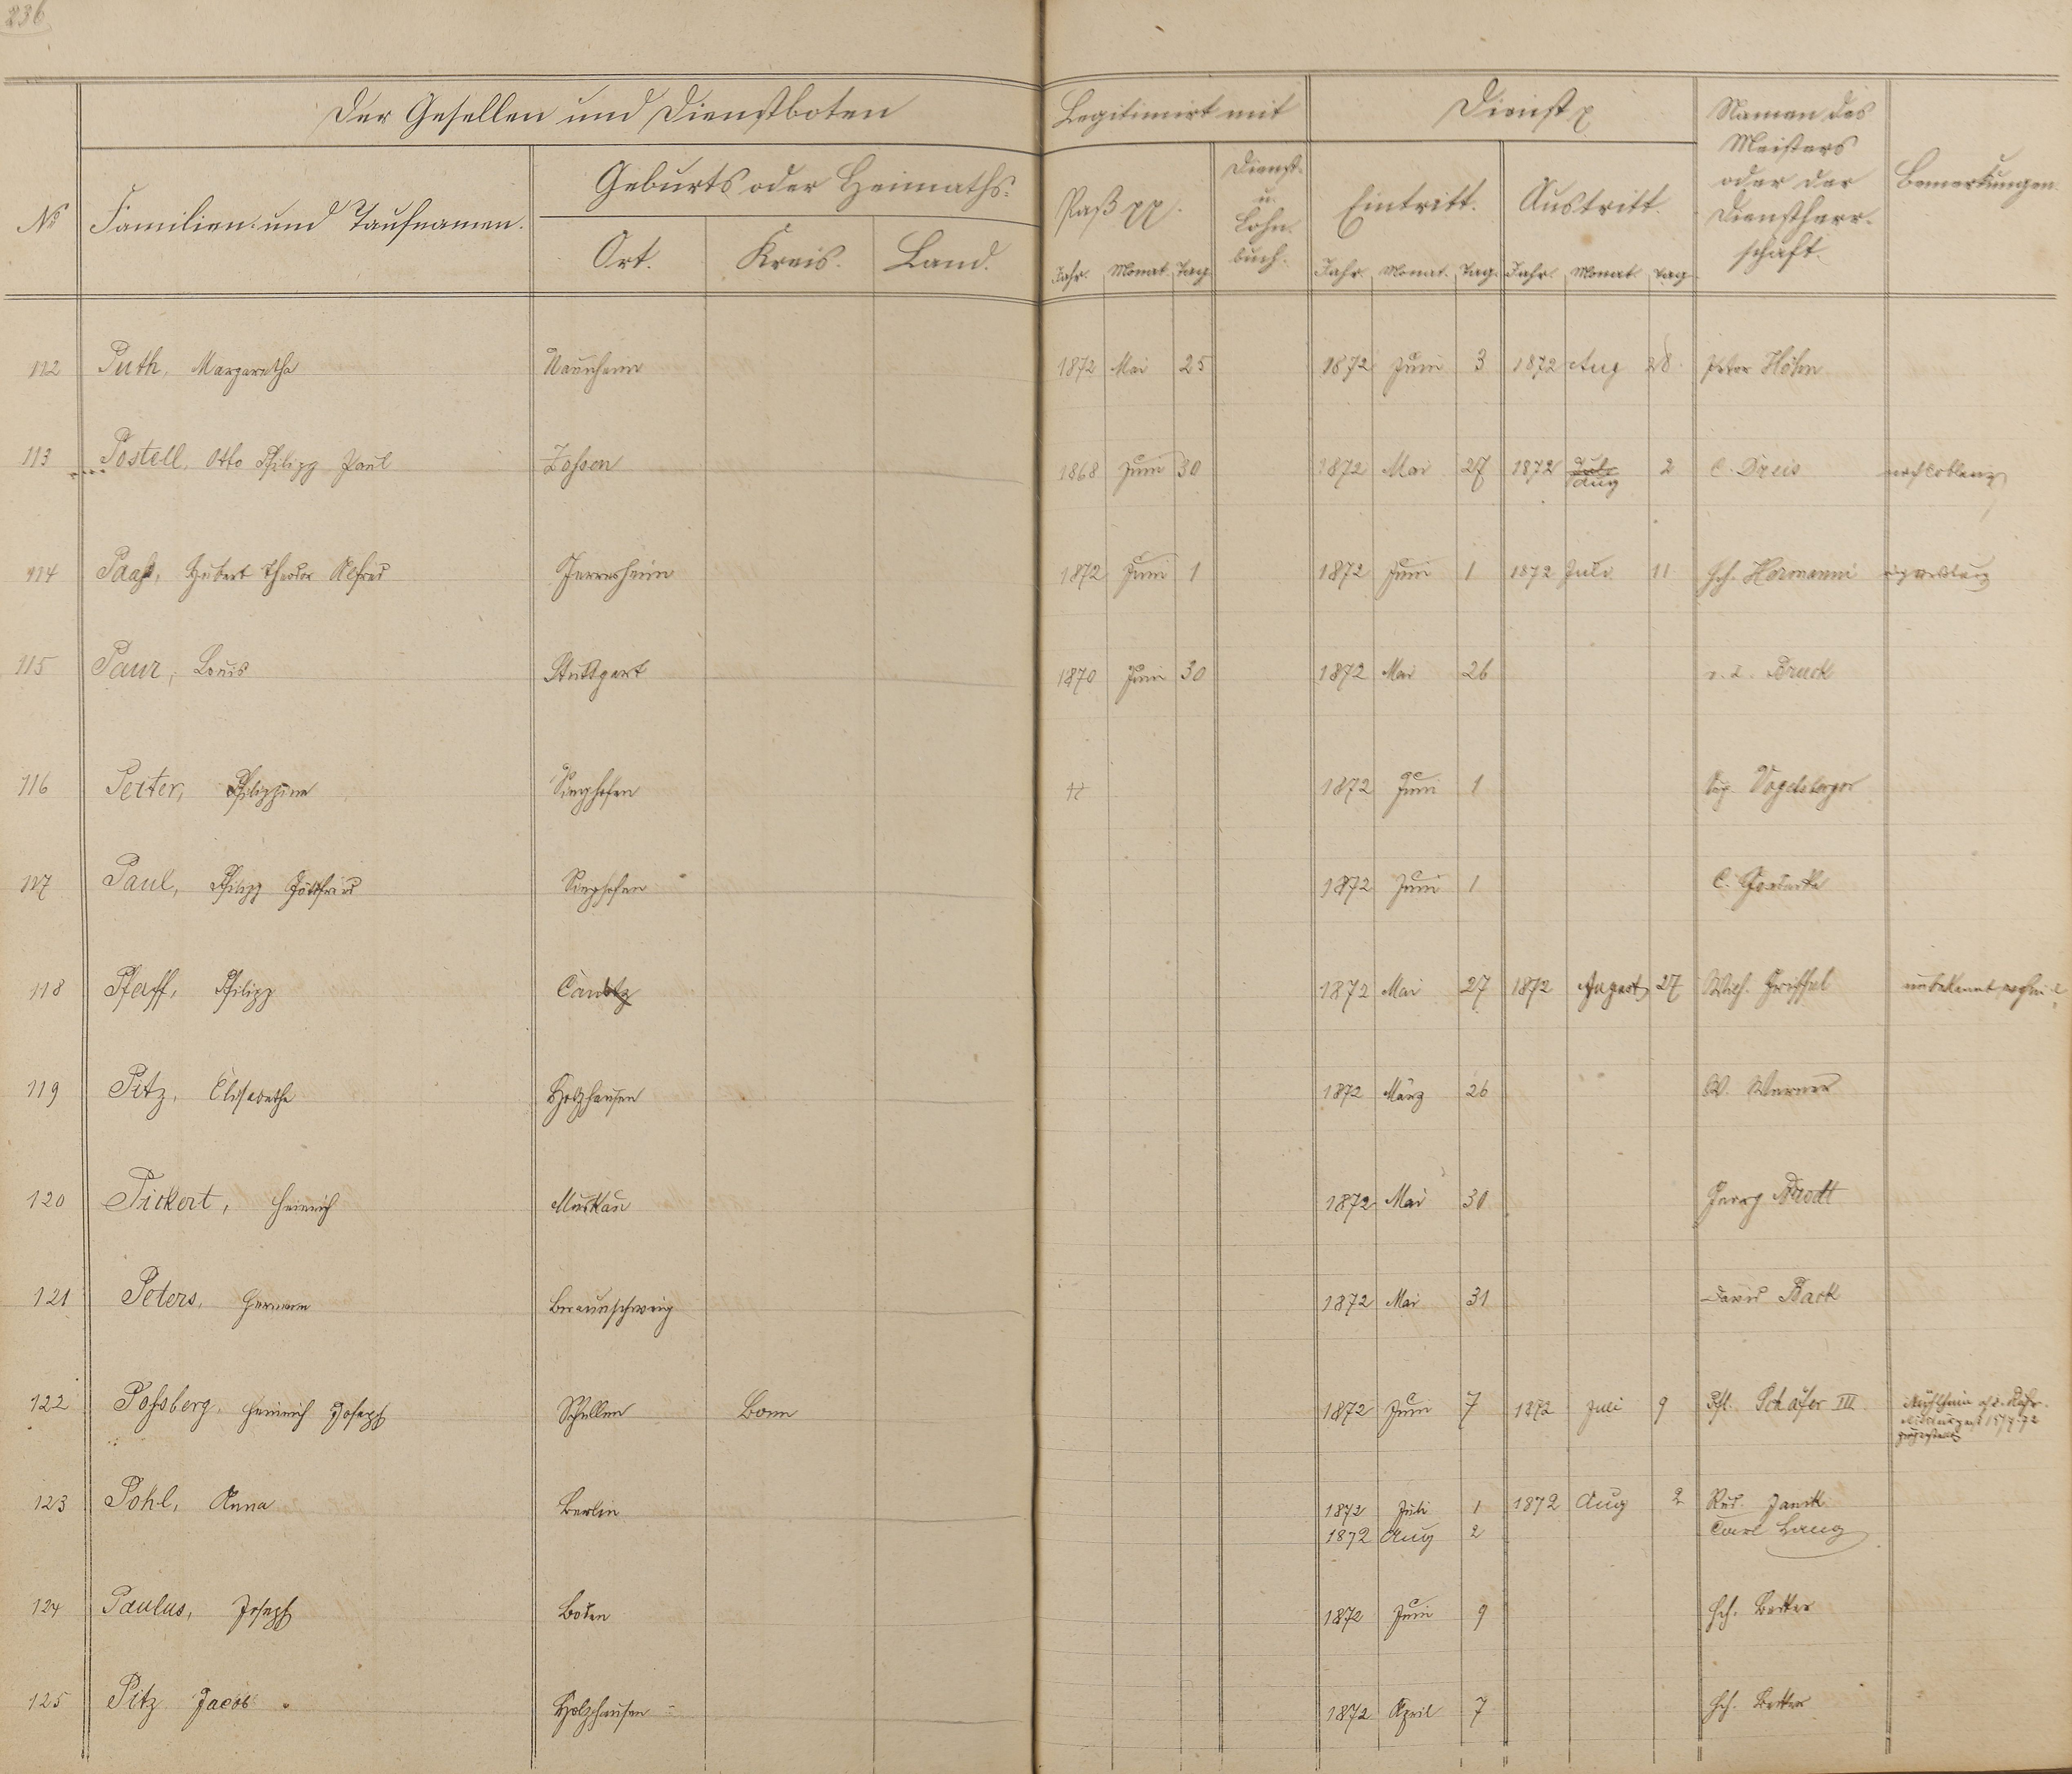 236
Der Gesellen und Dienstboten
Legitimirt mit
Dienst
Namen des
Meisters
oder der
Dienstherr-
schaft.
Bemerkungen.
No
Familien- und Taufnamen.
Geburts oder Heimaths-
Ort. Kreis. Land.
Paß pp.
Dienst-
u.
Lohn-
buch.
Eintritt. Austritt.
Jahr. Monat. Tag. Jahr. Monat. Tag. Jahr. Monat. Tag
112 Puth, Margaretha Nauheim 1872 Mai 25 1872 Juni 3 1872 Aug 28 Peter Höhn
113 Postell, Otto Philipp Paul Zossen 1868 Juni 30 1872 Mai 27 1872 Juli Aug 2 C. Dreis nach Coblenz
114 Hubert Theodor Alfred 1872 Juni 1 1872 Juni 1 1872 Juli 11 Hch. Hermanni
115 Paur, Louis Stuttgart 1870 Juni 30 1872 Mai 26 Bruck
116 Peiter, Philippine Singhofen 1872 Juni 1 Vogelsberger
117 Paul, Philipp Gottfried Singhofen 1872 Juni 1 C.
118 Pfaff, Philipp Caub 1872 Mai 27 1872 August 27 Wilh. unbekannt wohin
119 Pitz, Elisabetha Holzhausen 1872 März 26 W. Werner
120 Pickert, Heinrich Muskau 1872 Mai 30 Georg
121 Peters, Hermann Braunschweig 1872 Mai 31 David Back
122 Possberg, Heinrich Joseph Bonn 1872 Juni 7 1872 Juli 9 Ph. Schäfer III
123 Pohl, Anna Berlin 1872 Juli 1 1872 Aug 2 Rud. Janik
1872 Aug 2 Carl Lang
124 Paulus, Joseph Boden 1872 Juni 9 Hch.
125 Pitz Jacob Holzhausen 1872 April 7 Hch.